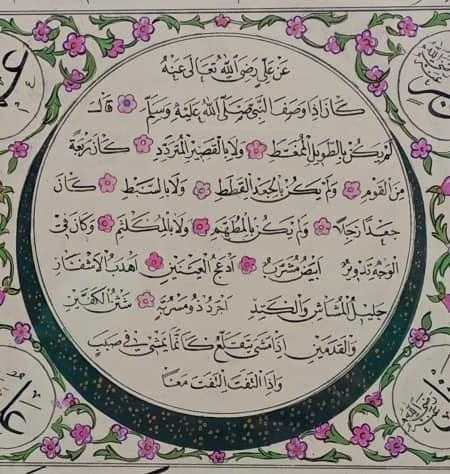 عَنْ عَلِيٍّ رَضِيَ اللهُ تَعَالَى عَنْهُ
كَانَ إِذَا وَصَفَ النَّبِيَّ صَلَّى اللهُ عَلَيْهِ وَسَلَّمَ قَالَ
لَمْ يَكُنْ بِالطَّوِيلِ الْمُمَغَّطِ وَلَا بِالْقَصِيرِ الْمُتَرَدِّدِ كَانَ رَبْعَةً
مِنَ الْقَوْمِ وَلَمْ يَكُنْ بِالْجَعْدِ الْقَطَطِ وَلَا بِالسَّبِطِ كَانَ
جَعْدًا رَجِلًا وَلَمْ يَكُنْ بِالْمُطَهَّمِ وَلَا بِالْمُكَلْثَمِ وَكَانَ فِي
الْوَجْهِ تَدْوِيرٌ أَبْيَضُ مُشْرَبٌ أَدْعَجُ الْعَيْنَيْنِ أَهْدَبُ الْأَشْفَارِ
جَلِيلُ الْمُشَاشِ وَالْكَتَدِ أَجْرَدُ ذُو مَسْرُبَةٍ شَثْنُ الْكَفَّيْنِ
وَالْقَدَمَيْنِ إِذَا مَشَى يَتَقَلَّعُ كَأَنَّمَا يَمْشِي فِي صَبَبٍ
وَإِذَا الْتَفَتَ الْتَفَتَ مَعًا